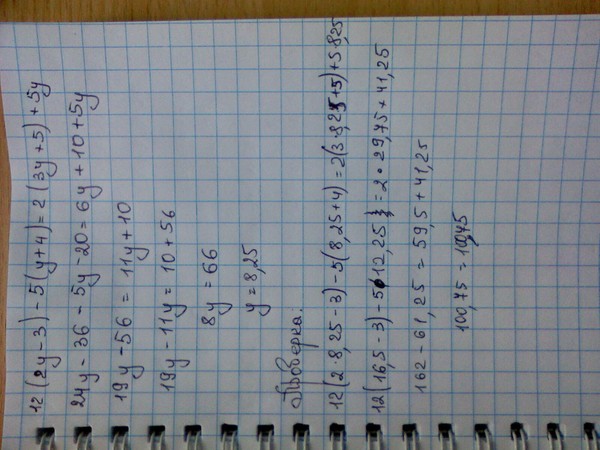 12(2y-3)-5(y+4)=2(3y+5)+5y
24y-36-5y-20=6y+10+5y
19y-56=11y+10
19y-11y=10+56
8y=66
y=8,25
Проверка:
12(2·8,25-3)-5(8,25+4)=2(3·8,25+5)+5·8,25
12(16,5-3)-5·12,25=2·29,75+41,25
162-61,25=59,5+41,25
100,75=100,75